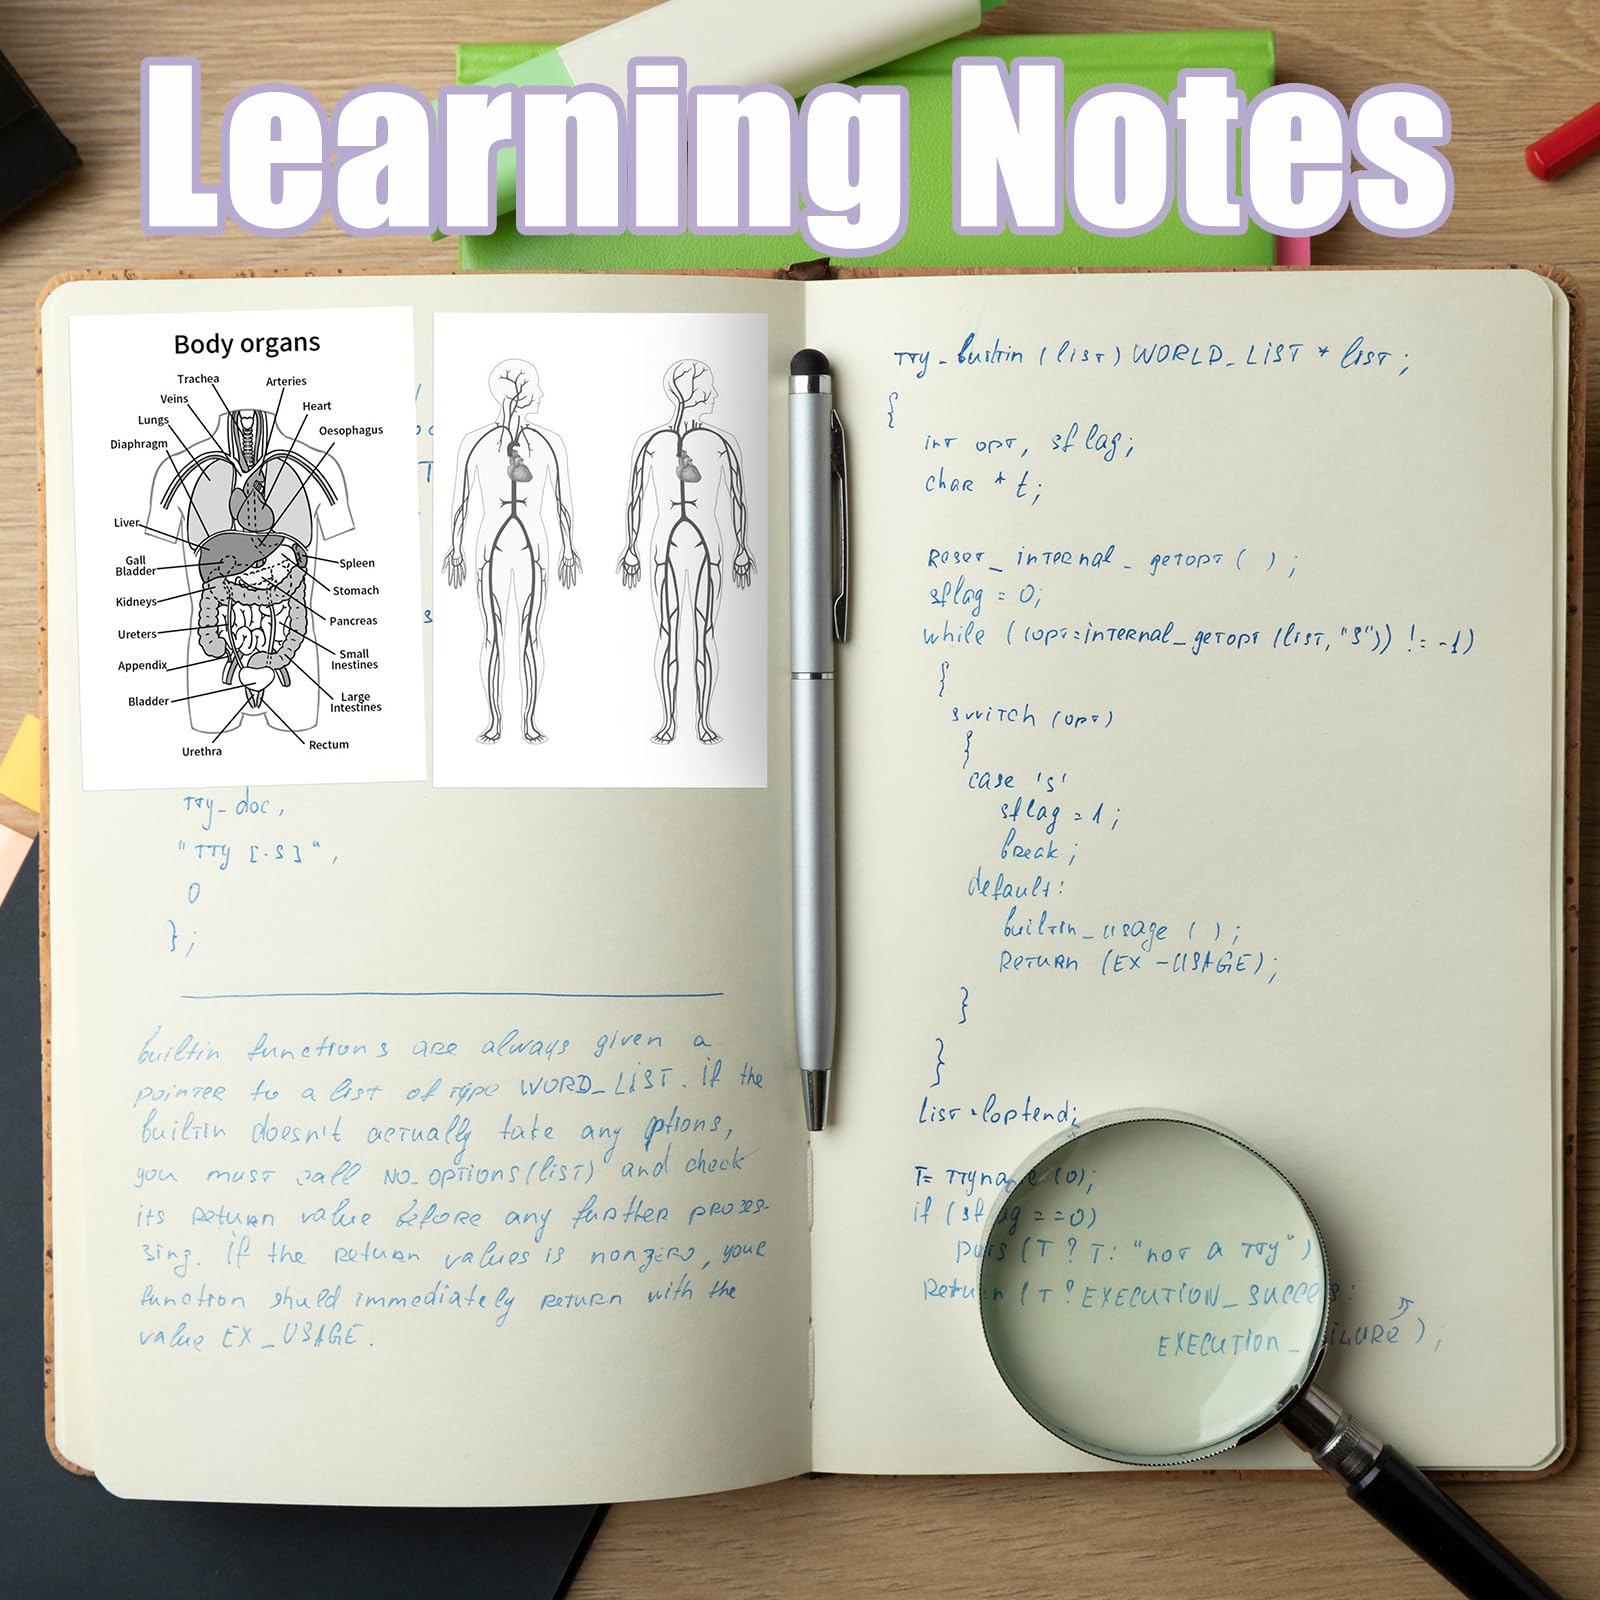 Learning Notes
Body organs
Trachea
Arteries
Veins
Heart
Lungs
Oesophagus
Diaphragm
Liver
Gall
Bladder
Spleen
Stomach
Kidneys
Pancreas
Ureters
Small
Inestines
Appendix
Large
Intestines
Bladder
Urethra
Rectum
tty_doc,
"TTY [-S]",
0
};
builtin functions are always given a
pointer to a list of type WORD_LIST. if the
builtin doesn't actually take any options,
you must call no_options(list) and check
its return value before any further proces-
sing. if the return values is nonzero, your
function shuld immediately return with the
value EX_USAGE.
tty_builtin (list) WORLD_LIST * list;
{
int opt, sflag;
char * t;
Reset_internal_getopt ( );
sflag = 0;
while ((opt=internal_getopt (list, "S")) != -1)
{
switch (opt)
{
case 's'
sflag = 1;
break;
default:
builtin_usage ( );
Return (EX-USAGE);
}
}
list=loptend;
T= ttyname (0);
if (sflag ==0)
puts (T ? T: "not a tty")
Return (T ? EXECUTION_SUCCESS:
EXECUTION_FAILURE);